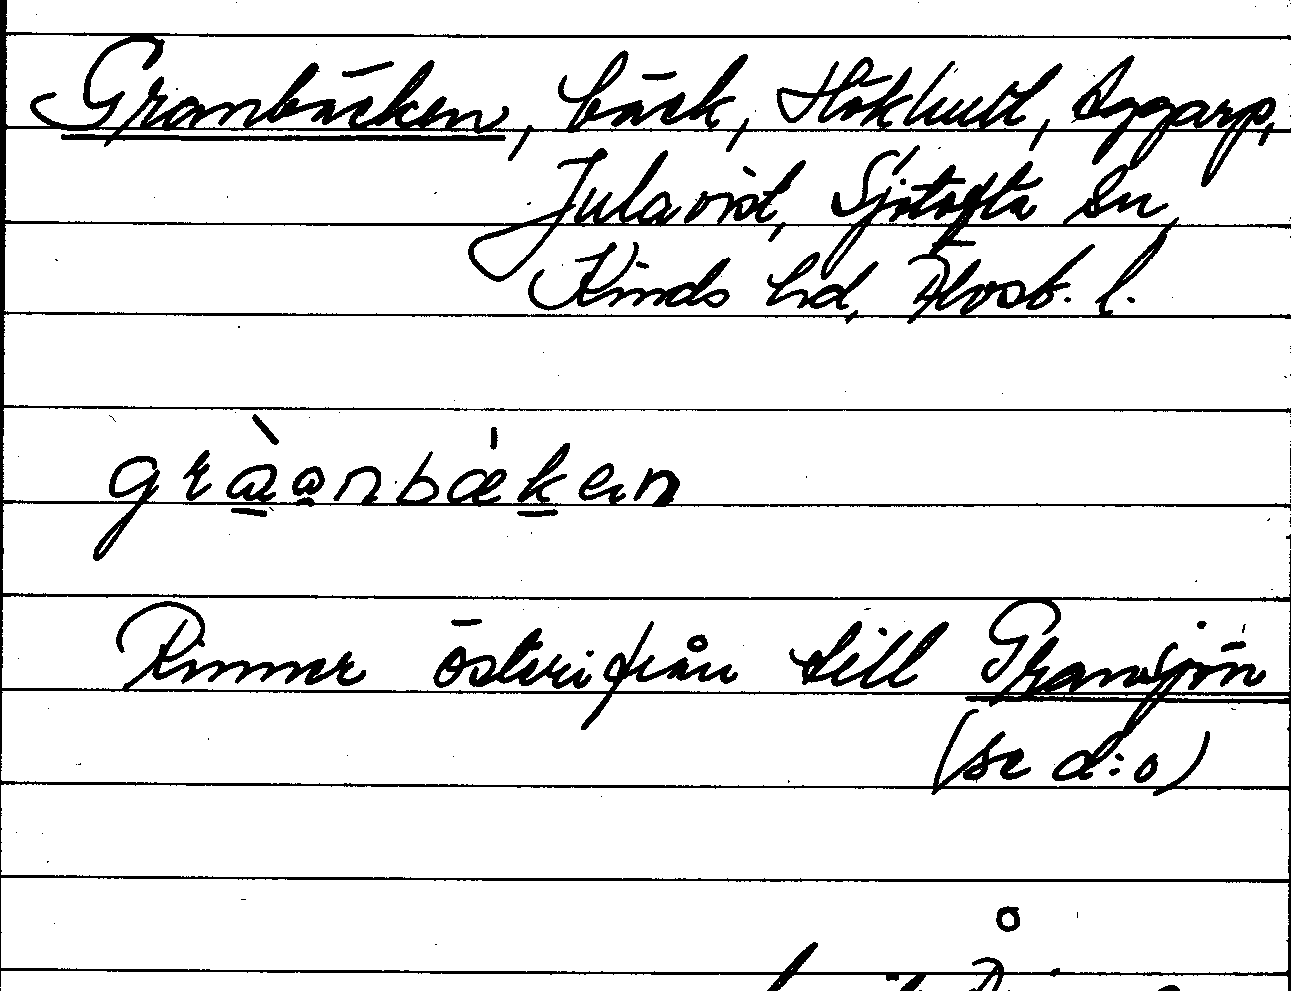 Granbäcken, bäck, Håkhult, Aggarp,
Julaviol, Sjötofta sn,
Kinds hd, Älvsb. l.
gràanbæken
Rinner österifrån till Gransjön
(se d:o)